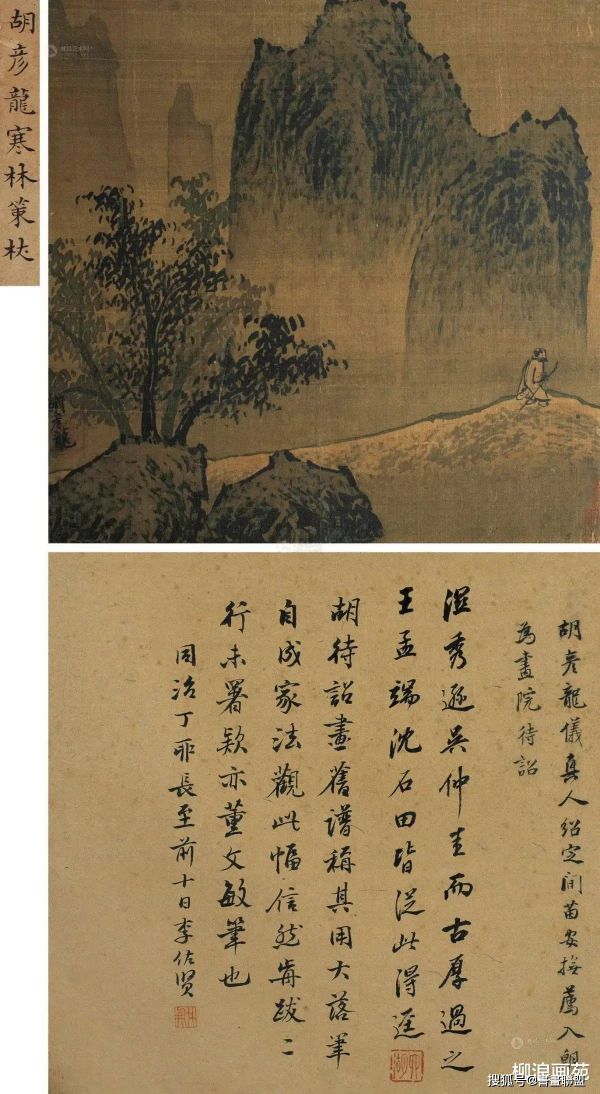 胡彦龍寒林策杖
胡彦龍
胡彦龍儀真人紹定間苗安撫薦入朝
為畫院待詔
溼秀遜吳仲圭而古厚過之
王孟端沈石田皆從此得逕
胡待詔畫舊譜稱其用大落筆
自成家法觀此幅信然崙跋二
行未署款亦董文敏筆也
同治丁卯長至前十日李佐賢
柳浪画苑
搜狐号@書畫聯盟